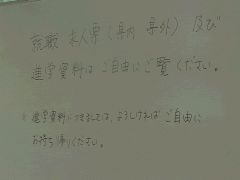 就職 求人票（県内 県外） 及び
進学資料は ご自由にご覧ください。
* 進学資料につきましては、よろしければ ご自由に
お持ち帰りください。